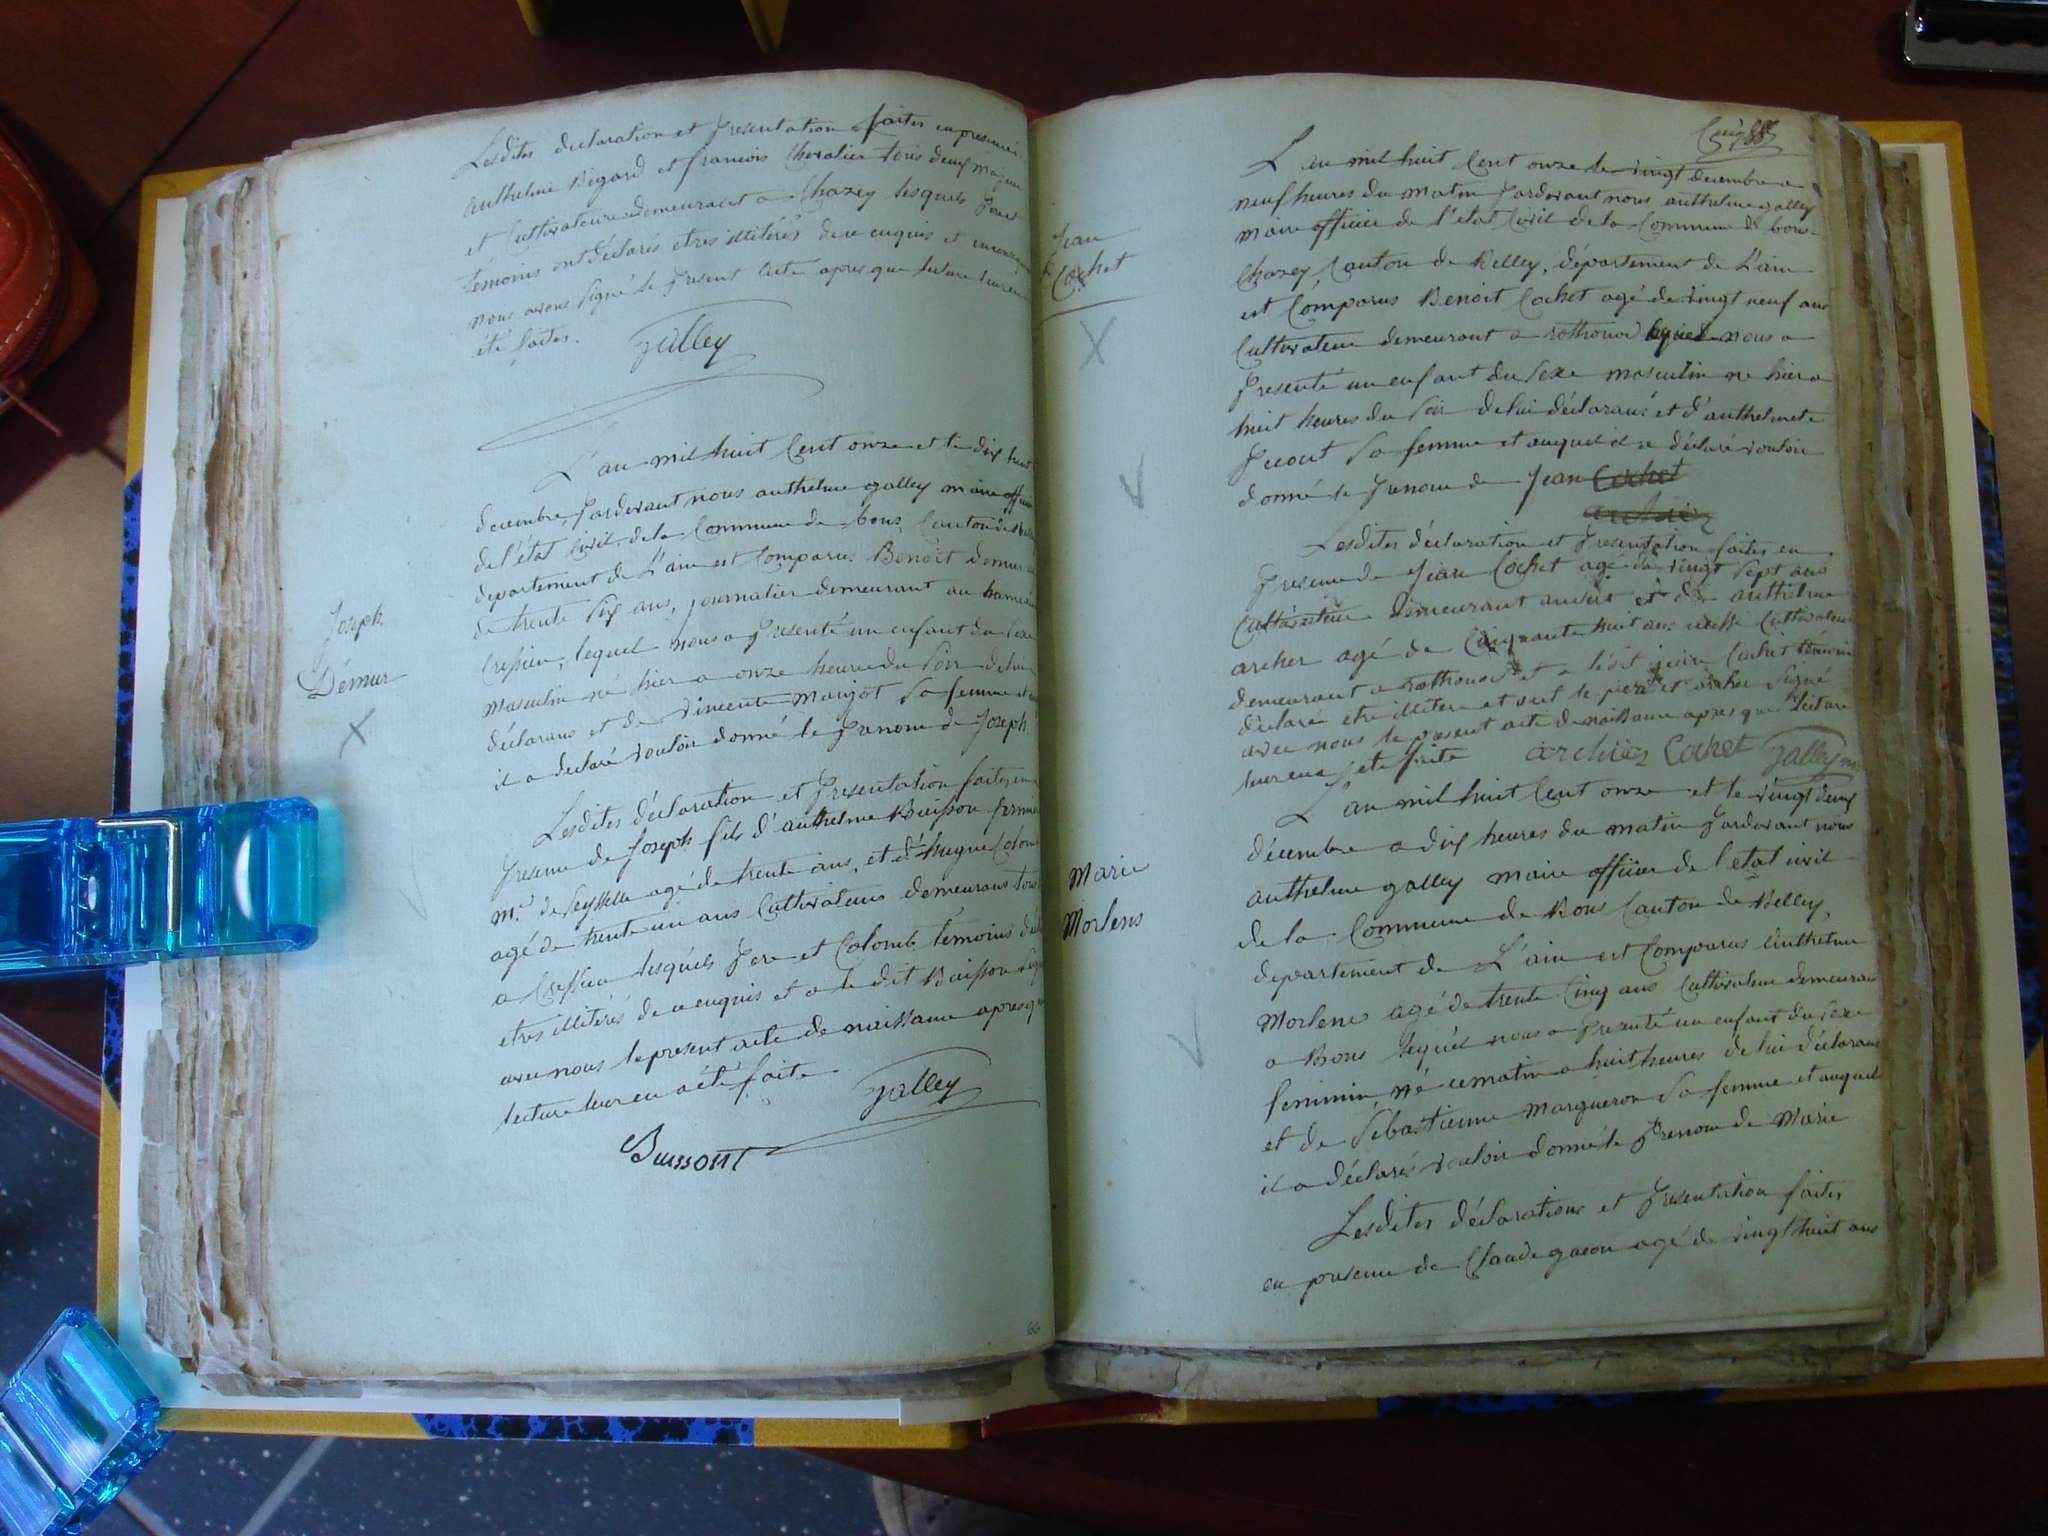 Lesdites declaration et presentation faites en presence
anthelme Bigard et francois Chevalier tous deux majeurs
et Cultivateurs demeurant a Chazey lesquels pere et
témoins ont déclarés etres illitérés de ce enquis et
nous avons signé le present acte apres que lecture leur en
été faites. Galley
L'an mil huit Cent onze et le dix huit
decembre, pardevant nous anthelme galley maire officier
de l'état Civil de la Commune de bons, Canton de
departement de L'ain est Comparu Benoit demur
de trente six ans, journalier demeurant au hameau
Cressieu, lequel nous a presenté un enfant du Sexe
Joseph
masculin né hier a onze heures du soir de lui
Démur
déclarans et de vincente Maujot sa femme et
il a declaré vouloir donné le prenom de Joseph
Lesdites déclaration et presentation faites en
presence de Joseph fils d'anthelme Buisson fermier
Mr. de Seyssel agé de trente ans, et d'hugue Colomb
agé de trente un ans Cultivateurs demeurans tous
a Cressieu lesquels pere et Colomb témoins
etres illitérés de ce enquis et a le dit Buisson signé
avec nous le present acte de naissance apres que
lecture leur en a été faite Galley
Buisson
66
L'an mil huit Cent onze le vingt decembre a
neuf heures du matin pardevant nous anthelme galley
maire officier de l'etat Civil de la Commune de bons
Jean
Cochet
Chazey Canton de Belley, département de L'ain
est Comparus Benoit Cochet agé de vingt neuf ans
Cultivateur demeurant a rothonod lequel nous a
presenté un enfant du sexe masculin né hier a
huit heures du soir de lui déclarant et d'anthelmete
sa femme et auquel il a déclaré vouloir
donné le prenom de Jean Cochet
Lesdites déclaration et presentation faites en
presence de Jean Cochet agé de vingt sept ans
Cultivateur demeurant audit et de anthelme
archer agé de Cinquante huit ans aussi Cultivateur
demeurant a rothonod et a ledit jean Cochet témoin
déclaré etre illitere et ont le pere et archer signé
avec nous le present acte de naissance apres que lecture
leur en a eté faite archier Cochet Galley m.
L'an mil huit Cent onze et le vingt deux
décembre a dix heures du matin pardevant nous
Marie
anthelme galley maire officier de l'etat civil
Morlens
de la Commune de Bons Canton de Belley,
departement de L'ain est Comparus Anthelme
Morlens agé de trente Cinq ans Cultivateur demeurant
a Bons lequel nous a presenté un enfant du sexe
feminin, né ce matin a huit heures de lui déclarans
et de Sebastienne Margueron sa femme et auquel
il a déclarés vouloir donné le prenom de Marie
Lesdites déclarations et presentation faites
en presence de Claude gacon agé de vingt huit ans